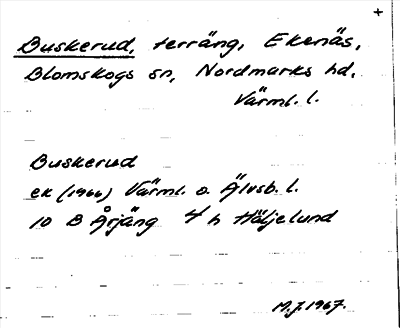 +
Buskerud, terräng, Ekenäs,
Blomskogs sn, Nordmarks hd,
Värml. l.
Buskerud
ek (1966) Värml. o. Älvsb. l.
10 B Årjäng 4 h Häljelund
M.J. 1967.